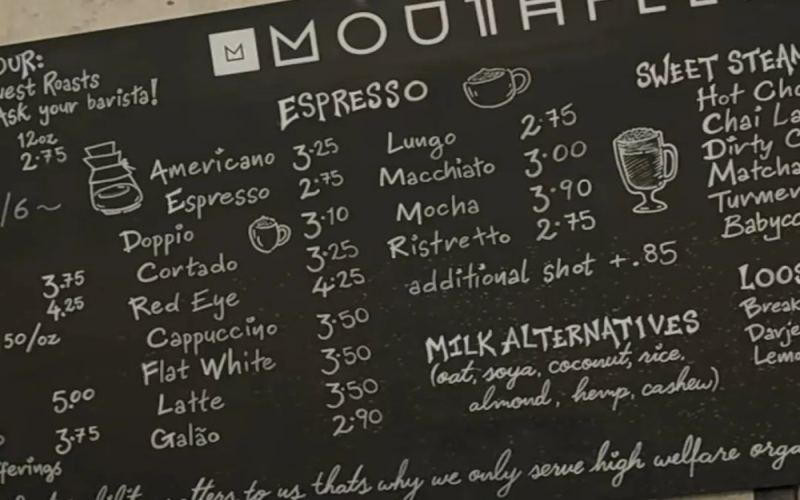 M MOUTHFE
OUR:
uest Roasts
Ask your barista!
12oz
2.75
/6~
3.75
4.25
50/oz
5.00
3.75
ferings
ESPRESSO
Americano 3.25
Espresso 2.75
Doppio 3.10
Cortado 3.25
Red Eye 4.25
Cappuccino 3.50
Flat White 3.50
Latte 3.50
Galão 2.90
Lungo 2.75
Macchiato 3.00
Mocha 3.90
Ristretto 2.75
additional shot +.85
MILK ALTERNATIVES
(oat, soya, coconut, rice,
almond, hemp, cashew)
SWEET STEAM
Hot Cho
Chai La
Dirty C
Matcha
Turmer
Babycc
LOOS
Break
Davje
Lemo
to us thats why we only serve high welfare orga